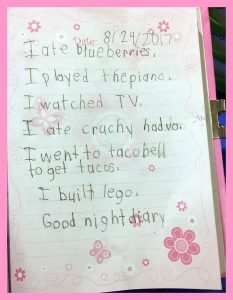 Date: 8/24/2017
I ate blueberries.
I played thepiano.
I watched TV.
I ate cruchy hadvo.
I went to tacobell
to get tacos.
I built lego.
Good night diary